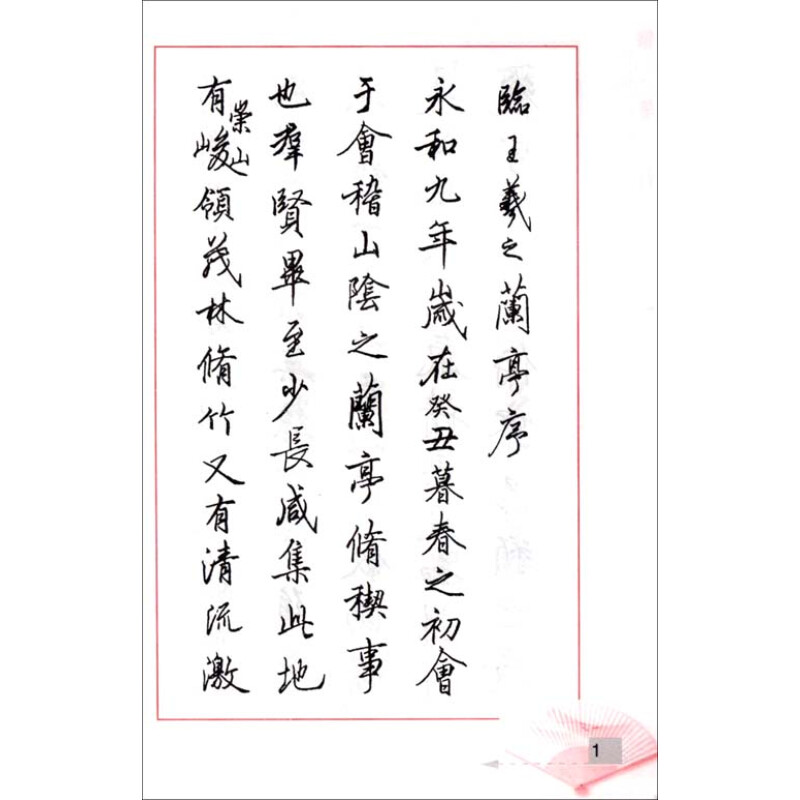 臨王羲之蘭亭序
永和九年歲在癸丑暮春之初會
于會稽山陰之蘭亭脩稧事
也羣賢畢至少長咸集此地
有崇山峻領茂林脩竹又有清流激
1